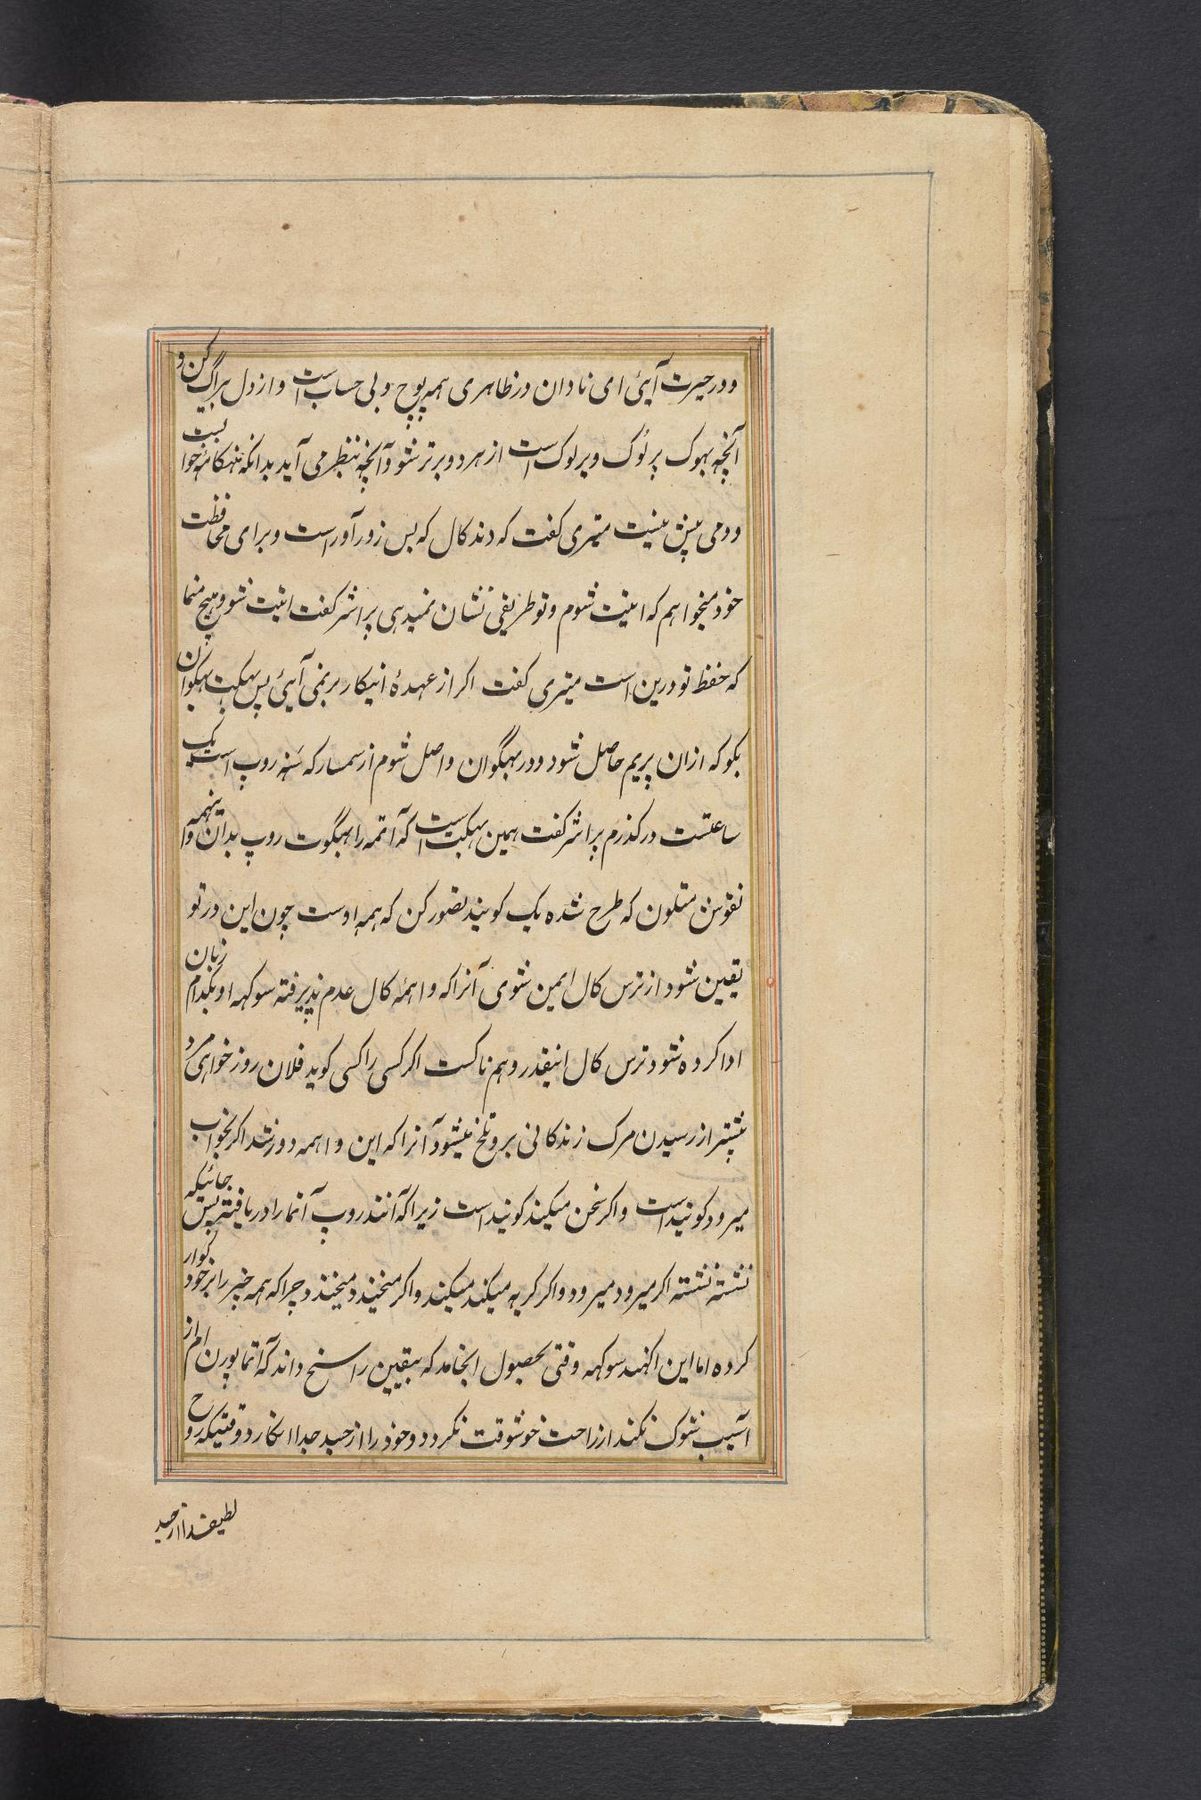 و در حیرت آیئ ای نادان در ظاهری همه پوچ و بی حساب است و از دل بیراگ کن و
آنچه بهوک پر لوک و پر لوک است از هر دو برتر شو و آنچه بنظر می آید بدانکه هنکامهٔ خوابست
و دمی بیش نیست میتری کفت که دند کال که بس زورآور است و برای محافظت
خود میخواهم که امنیت شوم و تو طریقی نشان نمیدهی پراشر کفت اثبت شو و هیچ منما
که حفظ تو درین است میتری کفت اکر از عهدهٔ اینکار بر نمی آیئ پس بهکت بهکوان
بکو که ازان پریم حاصل شود و در بهگوان واصل شوم از سمسار که سنه روپ است یک
ساعتست در کذرم پراشر کفت همین بهکت است که آتمه را بهگوت روپ بدان و اینهمه
نقوش متلون که طرح شده یک کویند تصور کن که همه اوست چون این در تو
یقین شود از ترس کال ایمن شوی آنرا که واهمهٔ کال عدم پذیرفته سوکهه او بکدام زبان
ادا کرده شود ترس کال اینقدر وهم ناکست اکر کسی را کسی کوید فلان روز خواهی مرد
پیشتر از رسیدن مرک زندکانی برو تلخ میشود آنرا که این واهمه دور شد اکر بخواب
میرود کونید است و اکر سخن میکیند کونید است زیرا که آنند روپ آتما را دریافته پس جائیکه
نشسته نشسته اکر میرود میرود و اکر کریه میکند میکند و اکر میخندد میخندد چرا که همه چیز را بر خود کوار
کرده اما این اکهند سوکهه وقتی بحصول انجامد که بیقین راسخ داند که آتما پورن ام از
آسیب شوک نکند از راحت خوشوقت نکردد و خود را از جسد جدا انکارد وقتیکه روح
لطیف از جسد